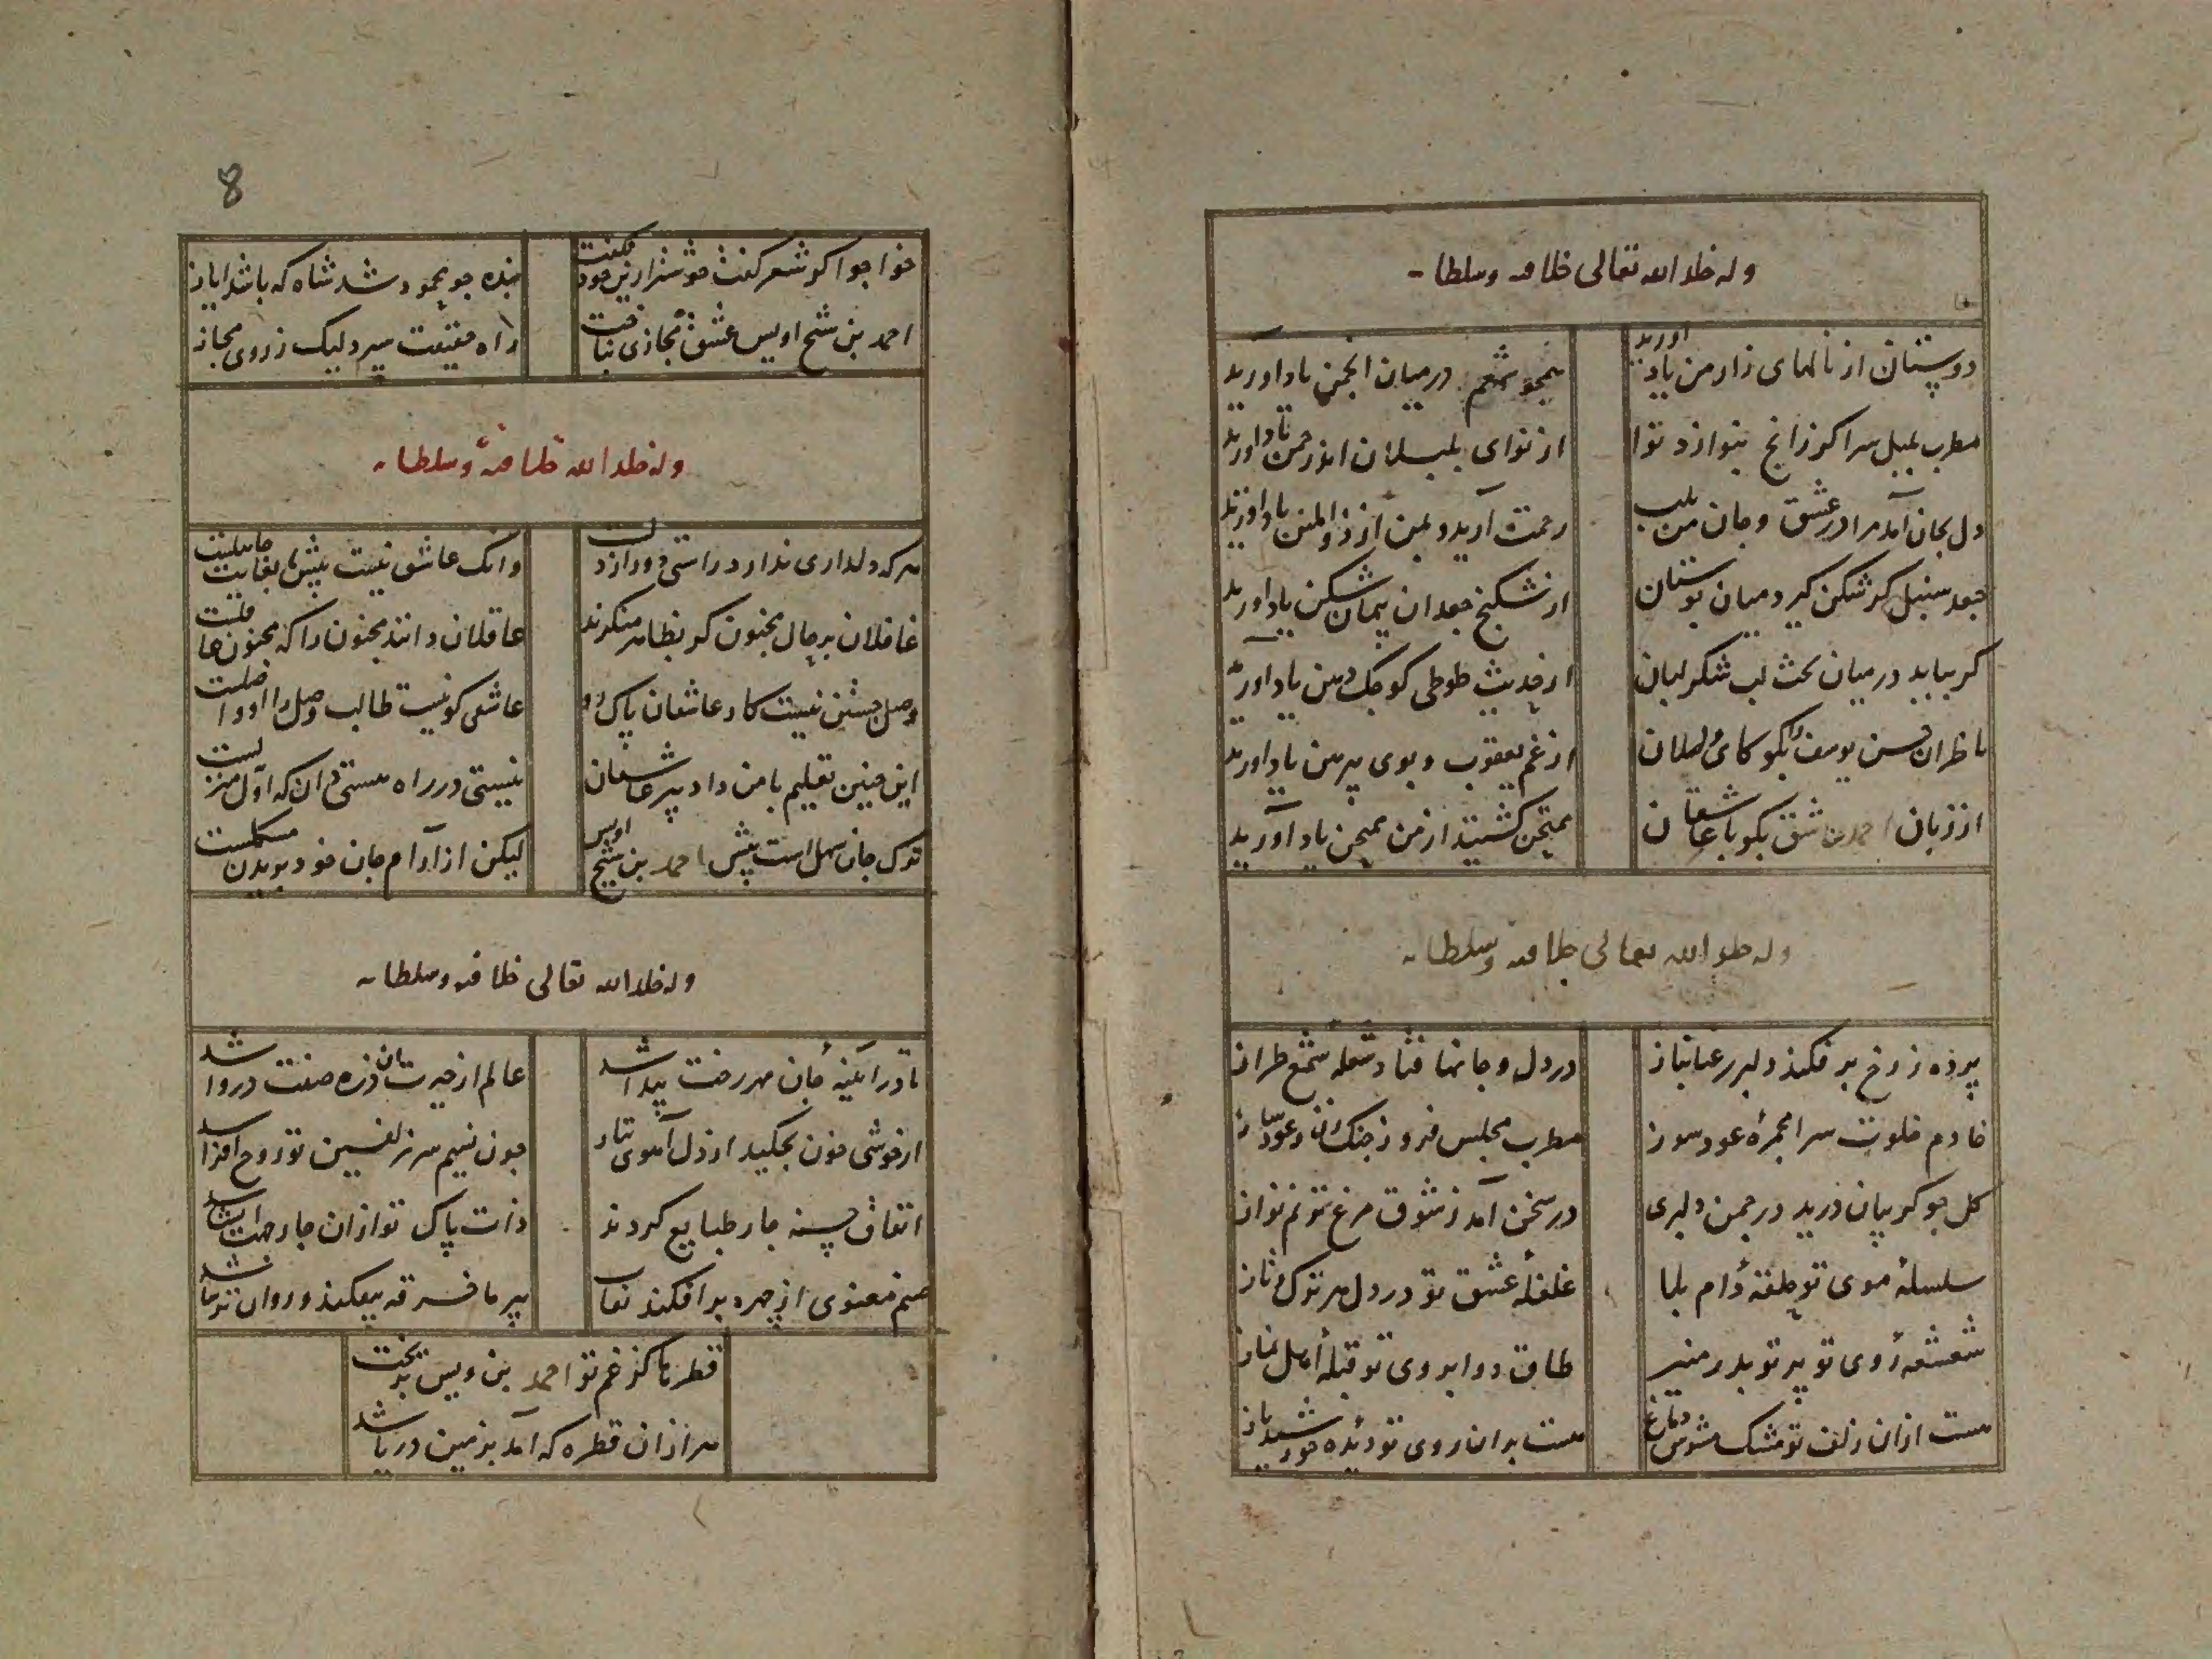 وله خلد الله تعالی خلافته وسلطانه
دوستان از نالهای زار من یاد اورید
همچو شمعم درمیان انجمن یاد اورید
مطرب بلبل سرا کر زانچ بنوازد نوا
از نوای بلبلان اندر چمن یاد اورید
دل بجان آمد مرا در عشق و جان من بلب
رحمت آرید و بمن از ذوالمنن یاد اورید
جعد سنبل کر شکن کیرد میان بوستان
از شکنج جعد ان پیمان شکن یاد اورید
کر بیاید درمیان بحث لب شکر لبان
از حدیث طوطی کوچک دهن یاد اورید
ناظران حسن یوسف را بکو کای
از غم یعقوب و بوی پیرهن یاد اورید
از زبان احمد عاشق بکو با عاشقان
ممتحن کشتید از من ممتحن یاد آورید
وله خلد الله تعالی خلافته وسلطانه
پرده ز رخ بر فکند دلبر رعنا بناز
در دل و جانها فتاد شعله شمع طراز
خادم خلوت سرا مجمره عود سوز
مطرب مجلس فروز چنک زن و عود ساز
کل چو کریبان درید در چمن دلبری
در سخن آمد ز شوق مرغ ترنم نواز
سلسله موی تو حلقه دام بلا
غلغله عشق تو در دل هر ترک تاز
شعشعه روی تو پرتو بدر منیر
طاق دو ابروی تو قبله اهل نماز
هست ازان زلف تو مشک مشوش دماغ
هست بران روی تو دیده خورشید باز
8
خواجوا کر شعر کفت خوشتر ازین خود نکفت
بنده چو محمود شد شاه که باشد ایاز
احمد بن شیخ اویس عشق مجازی نباخت
راه حقیقت سپرد لیک ز روی مجاز
وله خلد الله خلافته وسلطانه
هرکه دلداری ندارد راستی دور از دلست
وانک عاشق نیست پیش ما بغایت جاهلیست
غافلان بر حال مجنون کر بظاهر منکرند
عاقلان دانند مجنون را که مجنون عاقلست
وصل جستن نیست کار عاشقان پاک رو
عاشقی کو نیست طالب وصل را او واصلست
این چنین تعلیم با من داد پیر عاشقان
نیستی در راه هستی دان که اول منزلست
ترک جان سهل است پیش احمد بن شیخ اویس
لیکن از آرام جان خود بریدن مشکلست
وله خلد الله تعالی خلافته وسلطانه
تا در آئینه جان مهر رخت پیدا شد
عالم از حیرت ان ذره صفت دروا شد
از خوشی خون بچکید از دل آهوی تتار
چون نسیم سر زلفین تو روح افزا شد
اتفاق حسنه چار طبایع کردند
ذات پاک تو ازان چار جهت
صنم معنوی از چهره برافکند نقاب
پیر ما خرقه بیفکند و روان ترسا شد
قطره کز غم تو احمد بن ویس بریخت
هر ازان قطره که آمد بزمین دریا شد